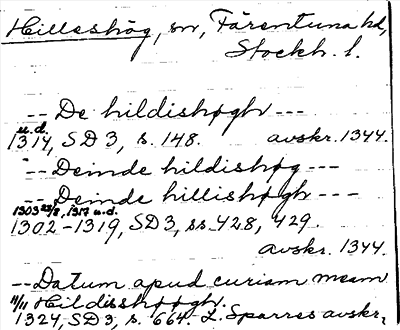 Hilleshög, sn, Färentuna hd,
Stockh. l.
-- De hildishøgh ---
u.d.
1314, SD 3, s. 148. avskr. 1344.
-- Deinde hildishøg ---
-- Deinde hillishøgh ---
1303 22/8, 1317 u.d.
1302-1319, SD 3, ss 428, 429.
avskr. 1344.
-- Datum apud curiam meam
11/11 Hildisshøøgh.
1324, SD 3, s. 664. L. Sparres avskr.